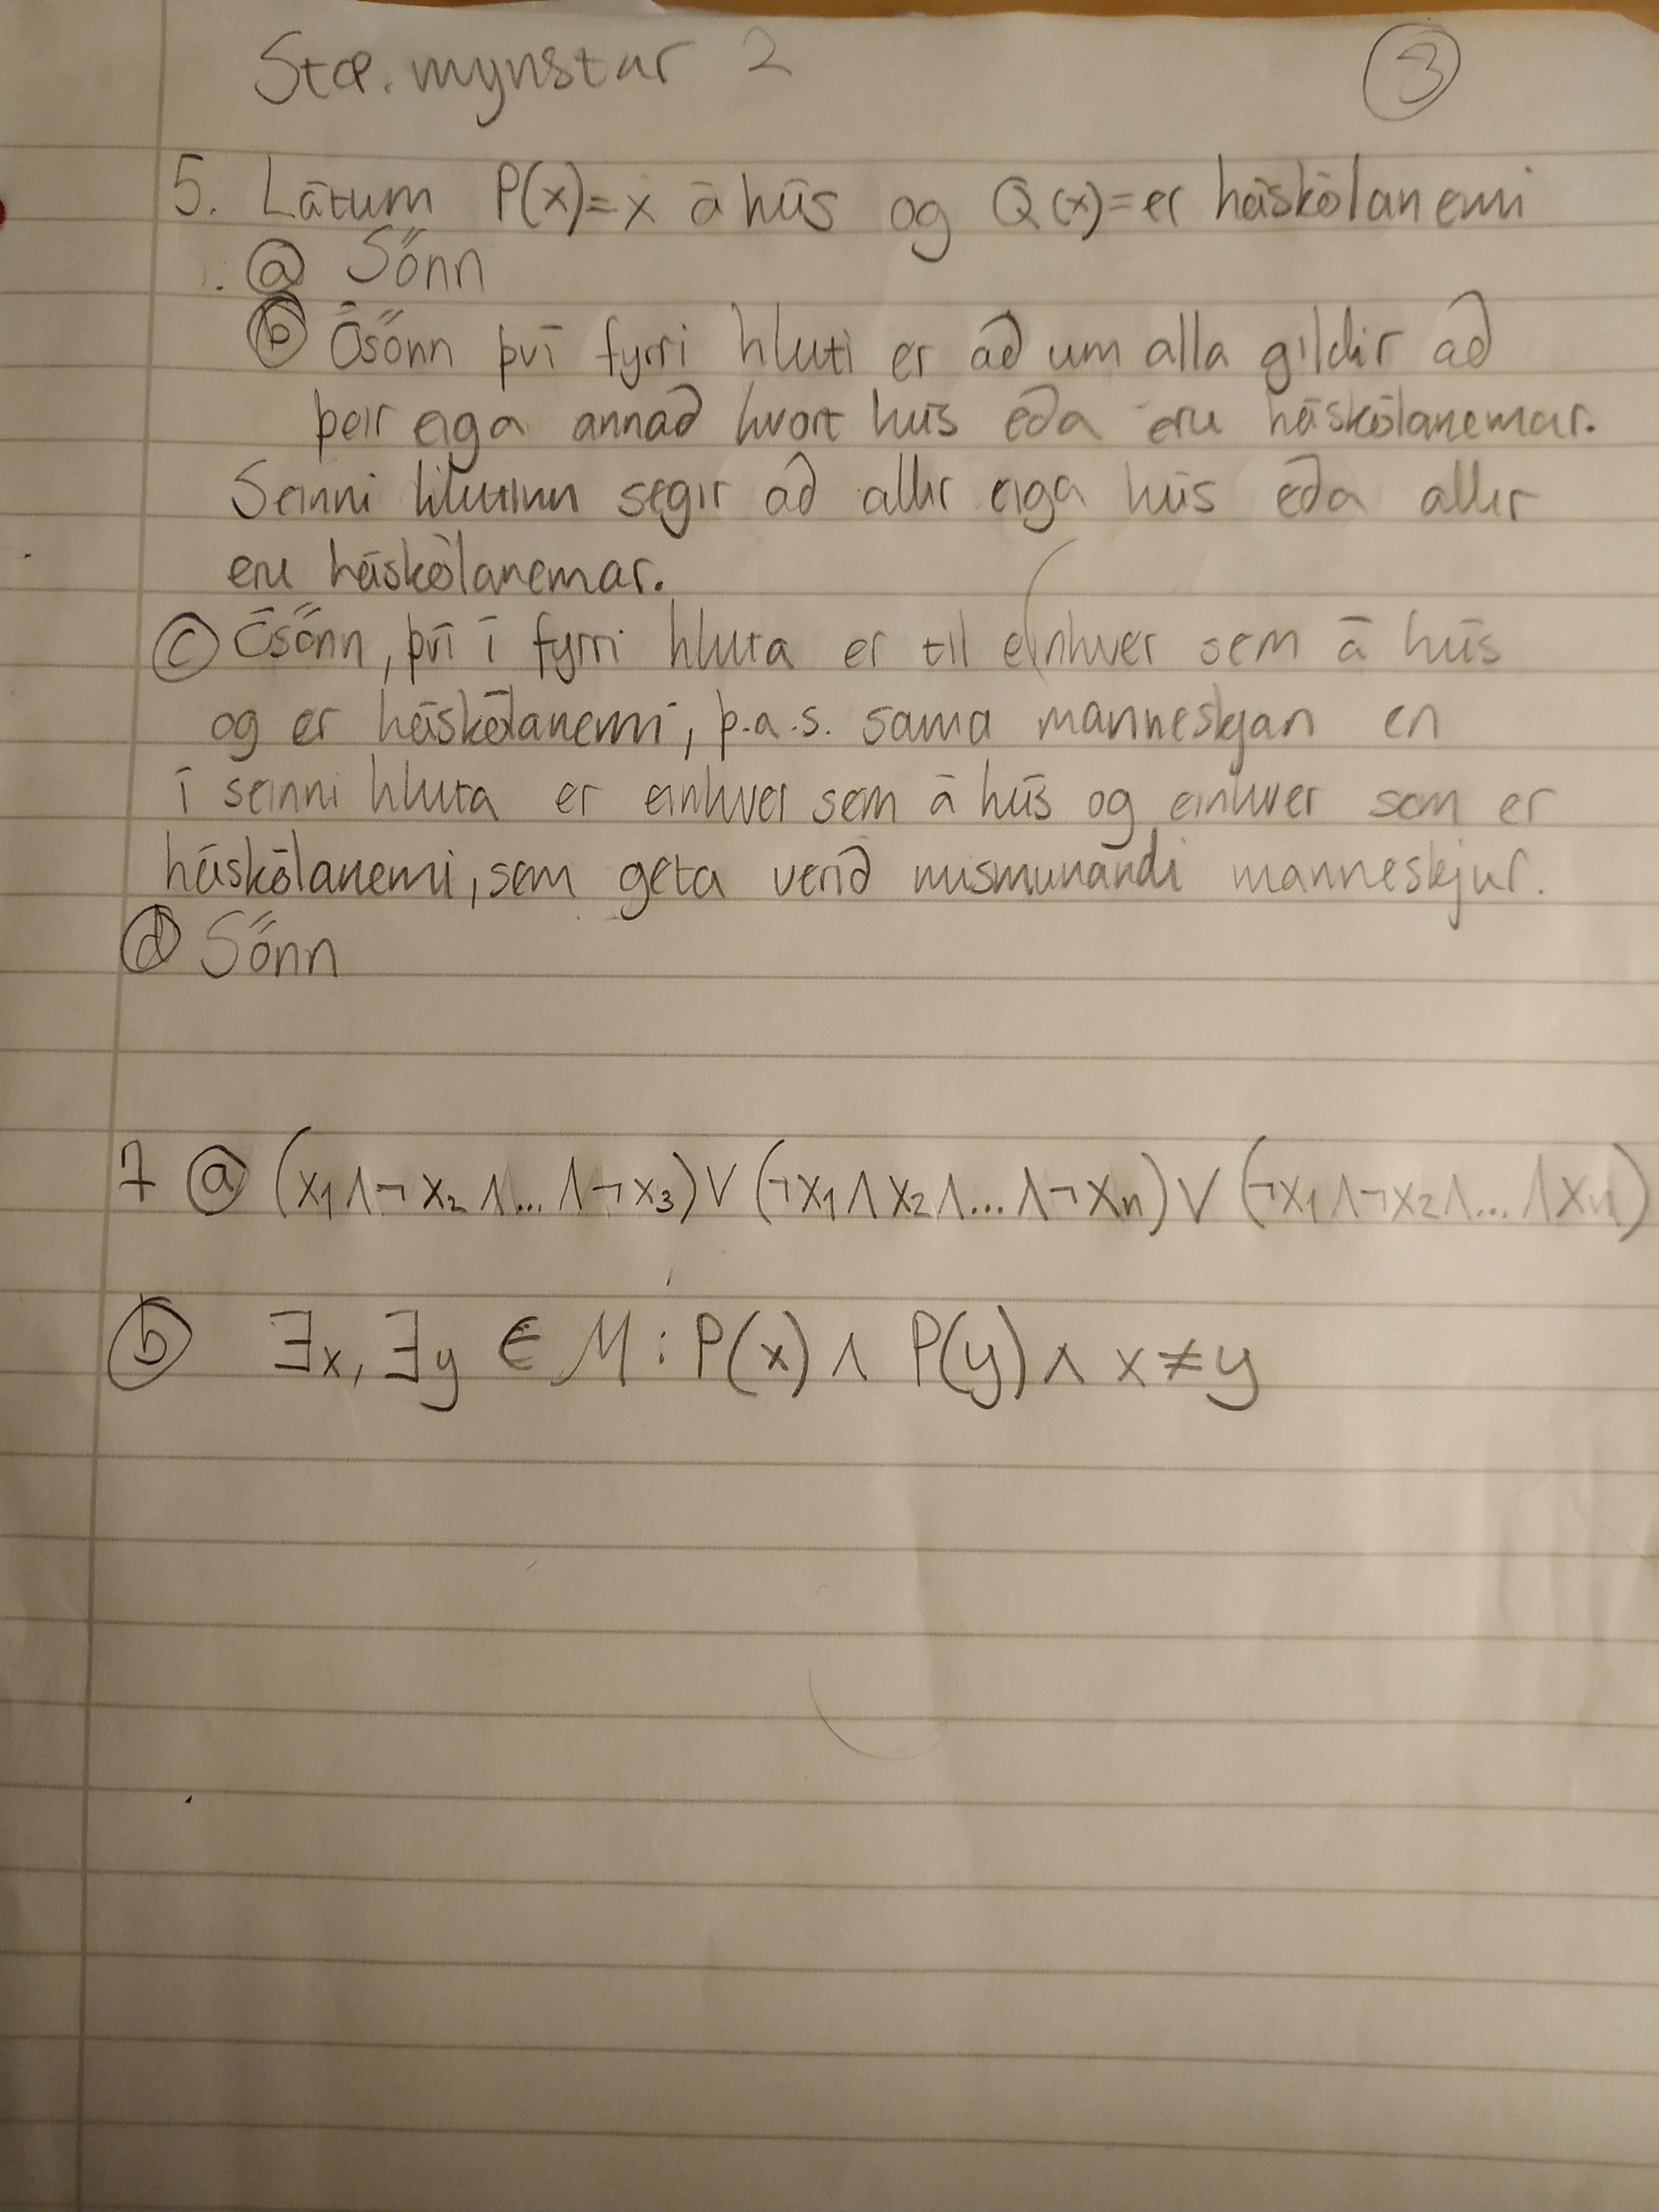 Stæ. mynstur 2
3
5. Látum P(x)=x á hús og Q(x)=er háskólanemi
a Sönn
b Ósönn því fyrri hluti er að um alla gildir að
þeir eiga annað hvort hús eða eru háskólanemar.
Seinni hlutinn segir að allir eiga hús eða allir
eru háskólanemar.
c Ósönn, því í fyrri hluta er til einhver sem á hús
og er háskólanemi, þ.a.s. sama manneskjan en
í seinni hluta er einhver sem á hús og einhver sem er
háskólanemi, sem geta verið mismunandi manneskjur.
d Sönn
7 a (x₁∧¬x₂∧...∧¬x₃)∨(¬x₁∧x₂∧...∧¬xₙ)∨(¬x₁∧¬x₂∧...∧xₙ)
b ∃x, ∃y ∈ M : P(x) ∧ P(y) ∧ x≠y